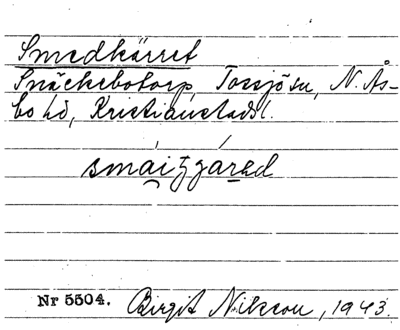 Smedkärret
Snäckebotorp, Tossjösn, N. Ås-
bo hd, Kristianstads l.
Nr 5504. Birgit Nilsson, 1943.